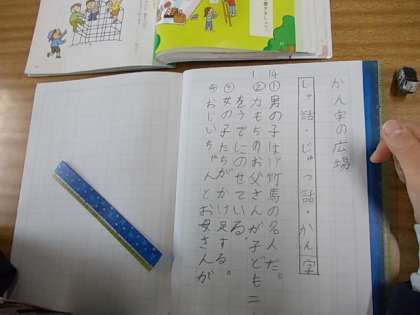 かん字の広場
しゅ語・じゅつ語・かん字
14
①男の子は、竹馬の名人だ。
1
②力もちのお父さんが子ども二
をうでにのせている。
③女の子たちがかけ足する。
④おじいちゃんとお母さんが